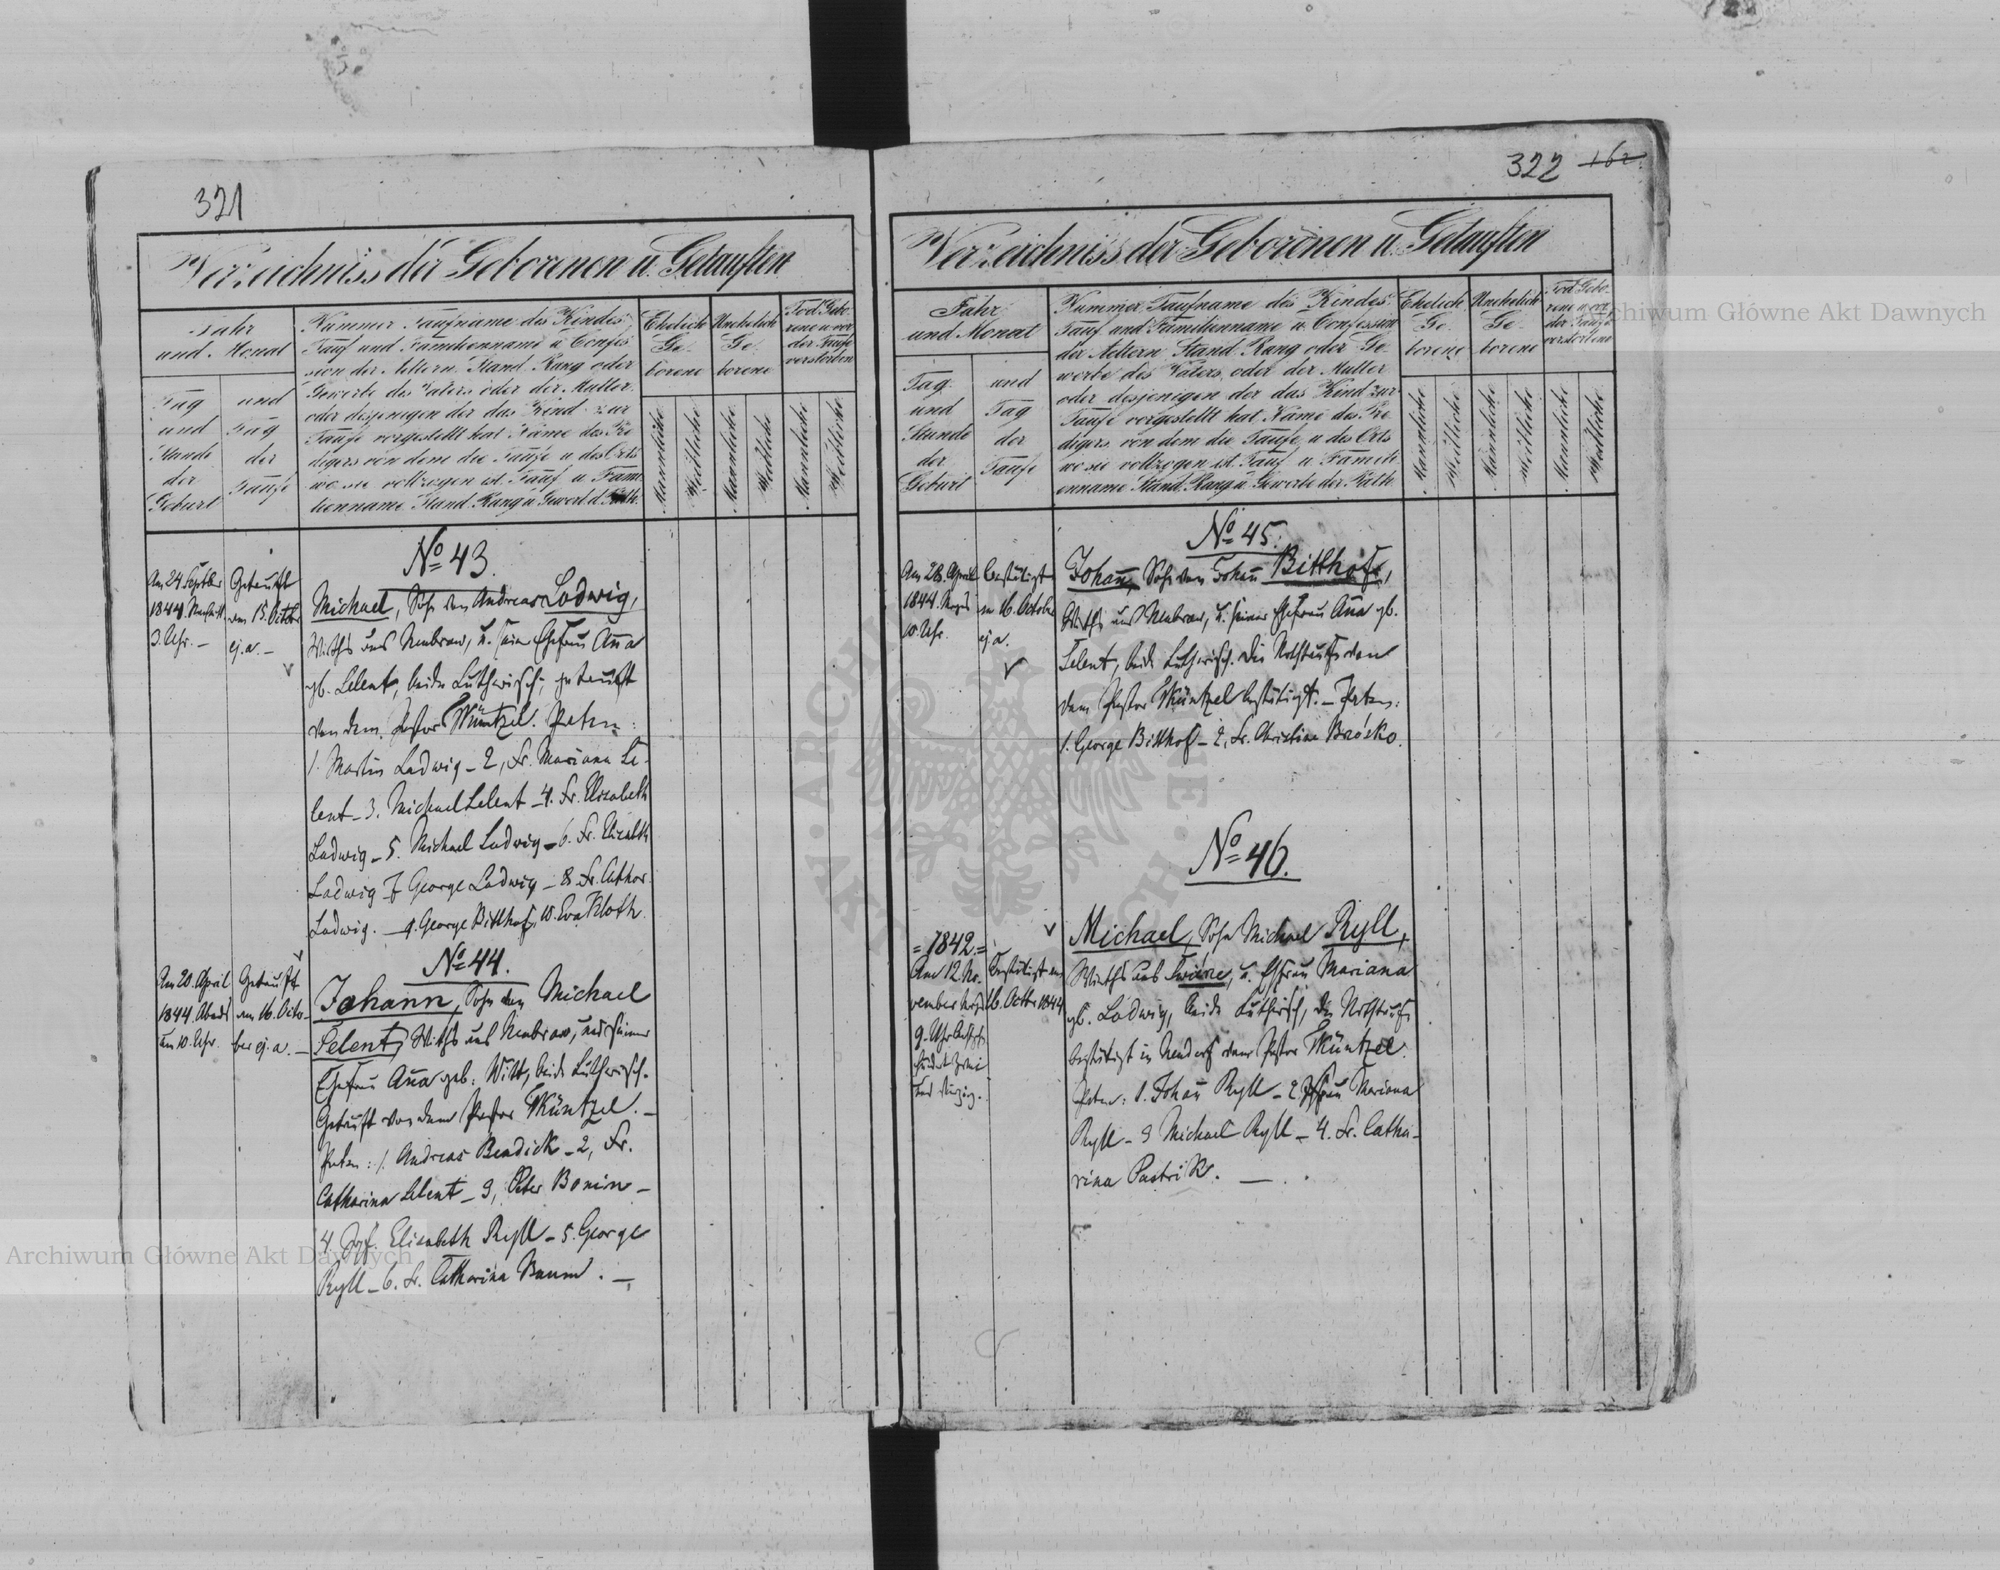 321
Verzeichniss der Geborenen u. Getauften
Jahr
und Monat
Tag
und
Stunde
der
Geburt
und
Tag
der
Taufe
Nummer Taufname des Kindes
Tauf und Familienname u Confes
sion der Aeltern Stand Rang oder
Gewerbe des Vaters oder der Mutter
oder desjenigen der das Kind zur
Taufe vorgestellt hat Name des Pre
digers von dem die Taufe u des Orts
wo sie vollzogen ist Tauf u Fami
lienname Stand Rang u Gewerb d. Path.
Ehelich
Ge-
borene
Unehelich
Ge-
borene
Tod Gebo-
rene u vor
der Taufe
verstorben
Männliche
Weibliche
Männliche
Weibliche
Männliche
Weibliche
No 43.
Am 24. Septber
1844. Nachmitt
3. Uhr. —
Getauft
am 15. Octbr
ej. a. —
Michael, Sohn des Andreas Ludwig,
Wirths aus Neubrow, u. seiner Ehefrau Anna
gb. Lelent, beide Lutherisch; getauft
von dem Pastor Müntzel. Paten:
1. Martin Ludwig — 2, Fr. Mariana Le-
lent — 3. Michael Lelent — 4. Fr. Elisabeth
Ludwig — 5. Michael Ludwig — 6. Fr. Elisabeth
Ludwig 7 George Ludwig — 8. Fr. Cathar.
Ludwig. — 9. George Bitthof, 10. Eva Kloth.
No 44.
Am 20. April
1844. Abends
um 10. Uhr.
Getauft
am 16. Octo-
ber ej. a. —
Johann, Sohn des Michael
Lelent, Wirths aus Neubrow, und seiner
Ehefrau Anna geb: Witt, beide Lutherisch.
Getauft von dem Pastor Müntzel. —
Paten: 1. Andreas Bendick — 2, Fr.
Catharina Lelent — 3, Peter Bonin —
4 Jgf. Elisabeth Ryll — 5. George
Ryll — 6. Fr. Catharina Baum. —
322 162
Verzeichniss der Geborenen u. Getauften
Jahr
und Monat
Tag
und
Stunde
der
Geburt
und
Tag
der
Taufe
Nummer Taufname des Kindes
Tauf und Familienname u Confession
der Aeltern Stand Rang oder Ge-
werbe des Vaters oder der Mutter
oder desjenigen der das Kind zur
Taufe vorgestellt hat Name des Pre
digers von dem die Taufe u des Orts
wo sie vollzogen ist Tauf u Famili
enname Stand Rang u Gewerbe der Path.
Ehelich
Ge-
borene
Unehelich
Ge-
borene
Tod Gebo-
rene u vor
der Taufe
verstorbene
Männliche
Weibliche
Männliche
Weibliche
Männliche
Weibliche
No 45.
Am 28. April
1844. Morgens
10. Uhr.
bestätigt
am 16. October
ej. a.
Johann, Sohn des Johann Bitthof,
Wirths aus Neubrow, u. seiner Ehefrau Anna gb.
Lelent, beide Lutherisch. Die Nothtaufe von
dem Pastor Müntzel bestätigt. — Paten:
1. George Bitthof — 2, Fr. Christina Brósko.
No 46.
= 1842. =
Am 12. No-
vember Morgs
9. Uhr
Bestätigt am
16. Octbr 1844
Michael, Sohn Michael Ryll,
Wirths aus, u. Ehefrau Mariana
gb. Ludwig, beide Lutherisch, die Nothtaufe
bestätigt in Neudorf vom Pastor Müntzel.
Paten: 1. Johann Ryll — 2. Mariana
Ryll — 3 Michael Ryll — 4. Fr. Catha-
rina Pastrik. —
Archiwum Główne Akt Dawnych
Archiwum Główne Akt Dawnych